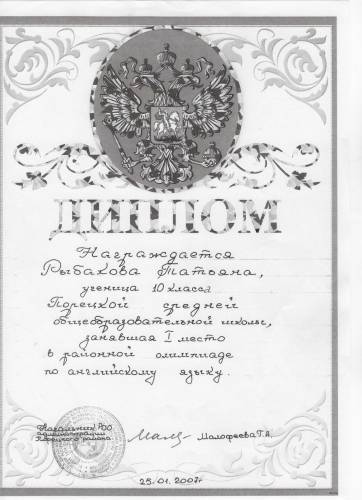 ДИПЛОМ
Награждается
Рыбакова Татьяна,
ученица 10 класса
Порецкой средней
общеобразовательной школы,
занявшая I место
в районной олимпиаде
по английскому языку.
Начальник РОО
администрации
Порецкого района
Малофеева Т.А.
25.01.2007г